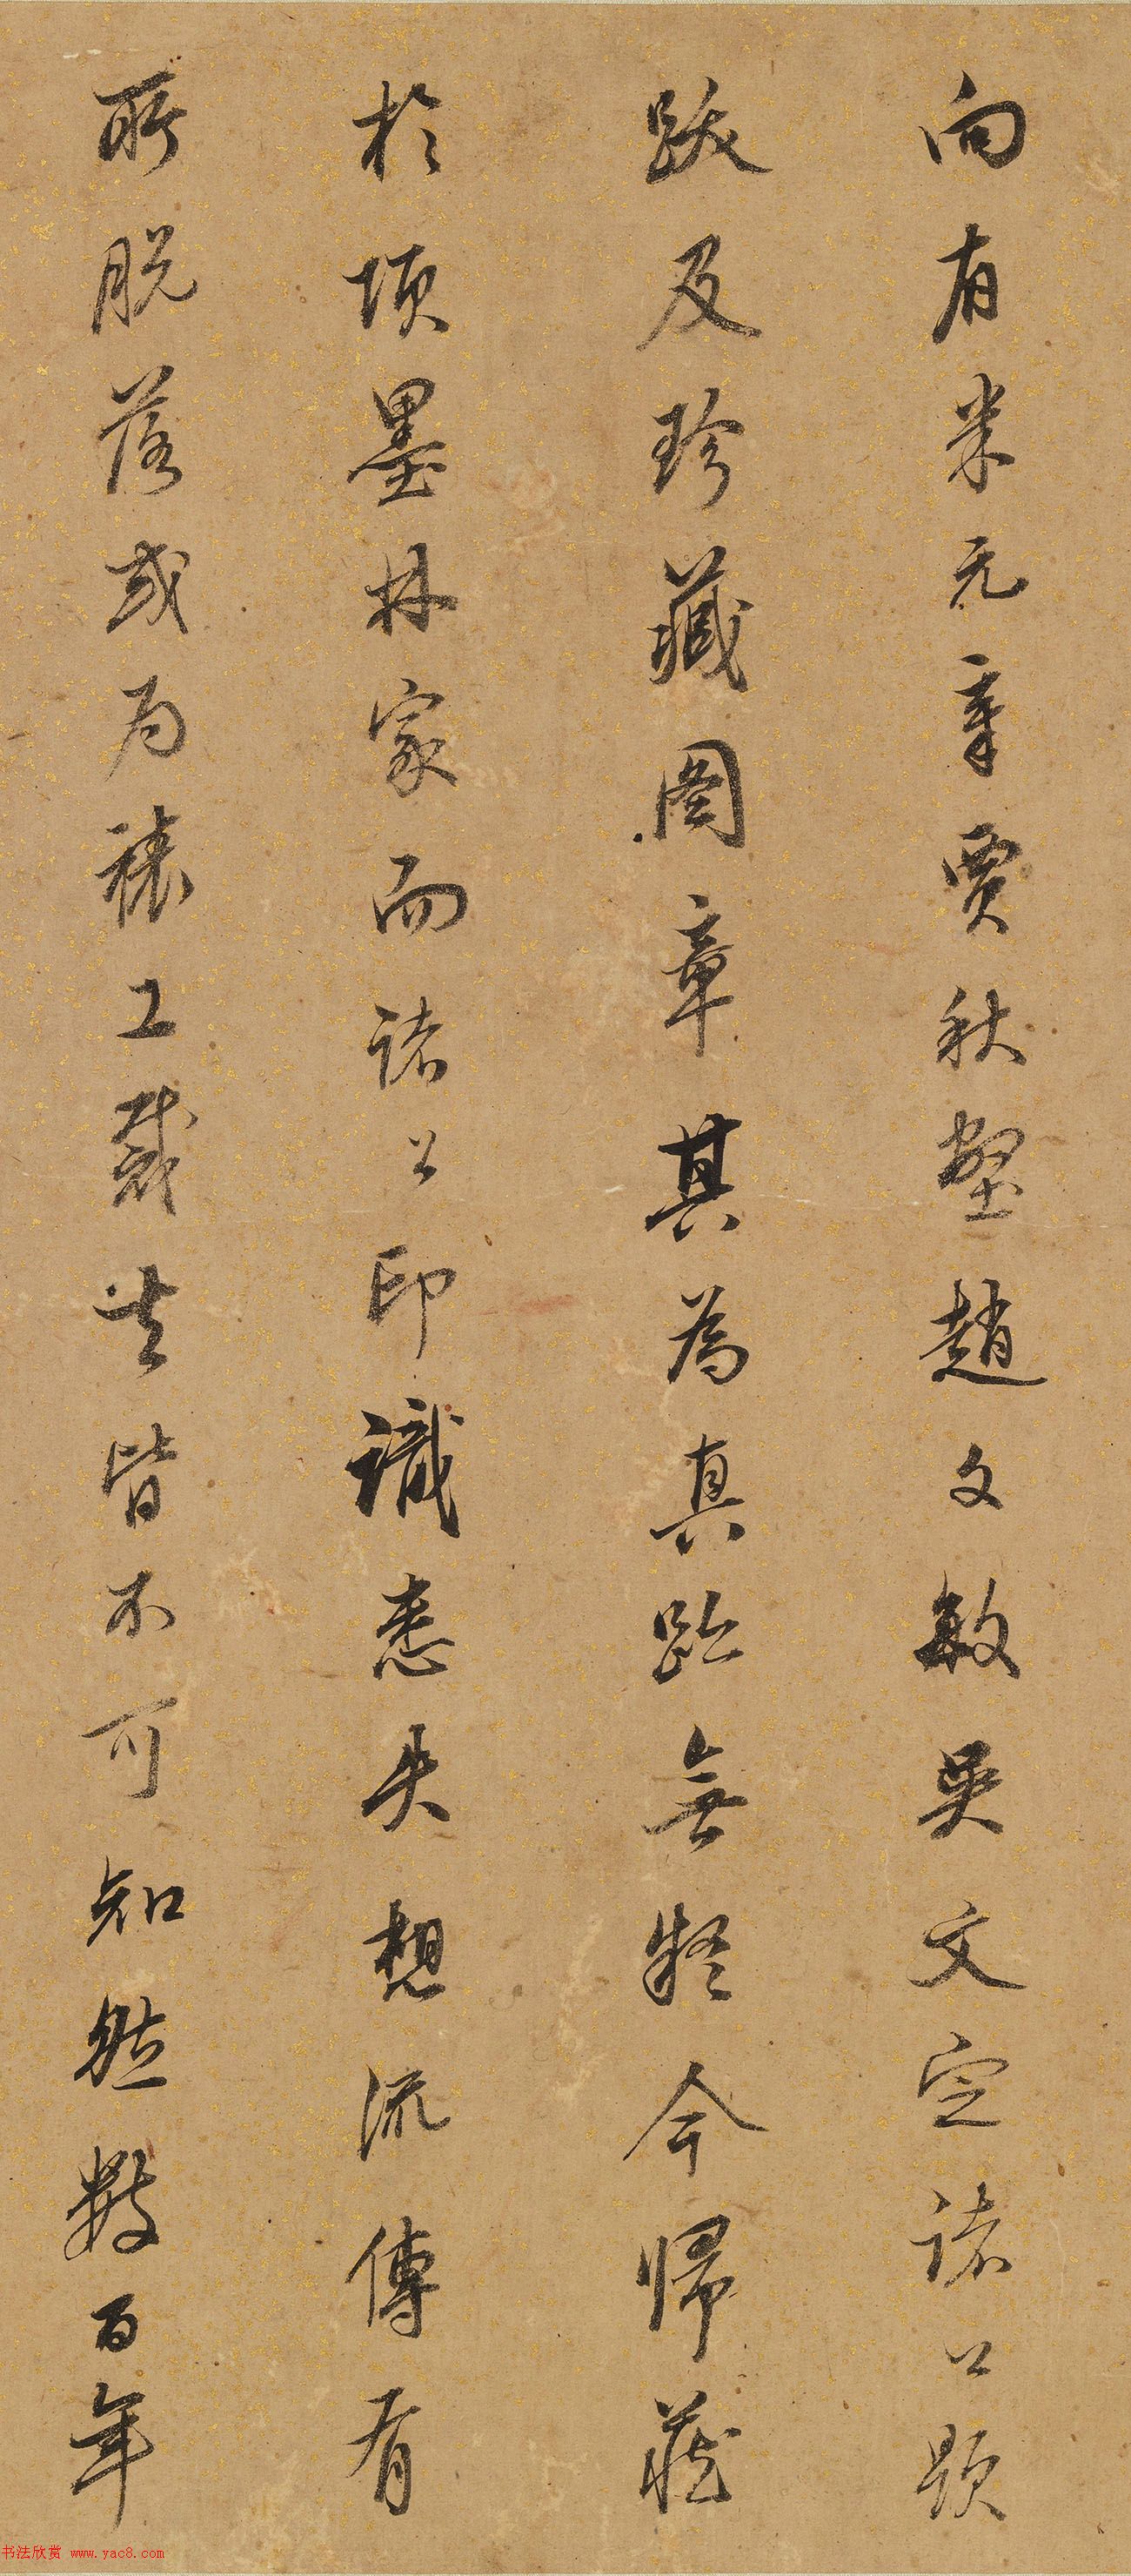 向有米元章賈秋壑趙文敏吴文定諸公題
跋及珍藏圖章其為真跡無疑今歸藏
於項墨林家而諸公印識悉失想流傳有
所脱落或为裱工裁去皆不可知然數百年
书法欣赏 www.yac8.com